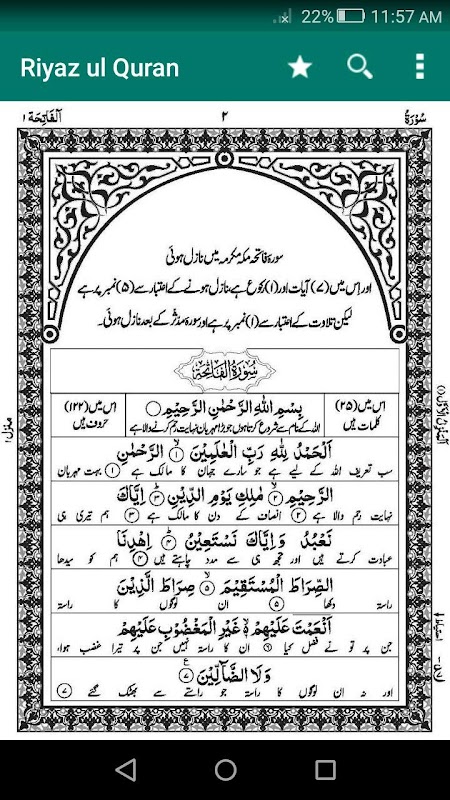 22% 11:57 AM
Riyaz ul Quran
سُوْرَةُ ٢ اَلْفَاتِحَة ١
سورۂ فاتحہ مکہ مکرمہ میں نازل ہوئی
اور اس میں (۷) آیات اور (۱) رکوع ہے، نازل ہونے کے اعتبار سے (۵) نمبر پر ہے
لیکن تلاوت کے اعتبار سے (۱) نمبر پر ہے اور سورہ مدثر کے بعد نازل ہوئی۔
سُوْرَةُ الْفَاتِحَةِ
اس میں (۲۵) کلمات ہیں
بِسْمِ اللهِ الرَّحْمٰنِ الرَّحِيْمِ
اللہ کے نام سے شروع کرتا ہوں جو بڑا مہربان نہایت رحم کرنے والا ہے
اس میں (۱۲۲) حروف ہیں
اَلْحَمْدُ لِلّٰهِ رَبِّ الْعٰلَمِيْنَ ۙ﴿۱﴾ الرَّحْمٰنِ
سب تعریف اللہ کے لیے ہے جو سارے جہان کا مالک ہے ① بہت مہربان
الرَّحِيْمِ ۙ﴿۲﴾ مٰلِكِ يَوْمِ الدِّيْنِ ﴿۳﴾ اِيَّاكَ
نہایت رحم والا ہے ② انصاف کے دن کا مالک ہے ③ ہم تیری ہی
نَعْبُدُ وَاِيَّاكَ نَسْتَعِيْنُ ﴿۴﴾ اِهْدِنَا
عبادت کرتے ہیں اور تجھ ہی سے مدد چاہتے ہیں ④ ہم کو سیدھا
الصِّرَاطَ الْمُسْتَقِيْمَ ۙ﴿۵﴾ صِرَاطَ الَّذِيْنَ
راستہ دکھا ⑤ ان لوگوں کا راستہ
اَنْعَمْتَ عَلَيْهِمْ ۙ۬﴿۶﴾ غَيْرِ الْمَغْضُوْبِ عَلَيْهِمْ
جن پر تو نے فضل کیا ⑥ ان کا راستہ نہیں جن پر تیرا غضب ہوا،
وَلَا الضَّآلِّيْنَ ﴿۷﴾
اور نہ ان لوگوں کا راستہ جو راستے سے بھٹک گئے ⑦
منزل ۱